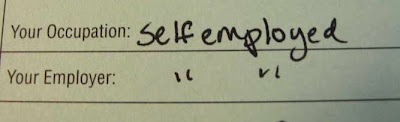 Your Occupation: Self employed
Your Employer: " "